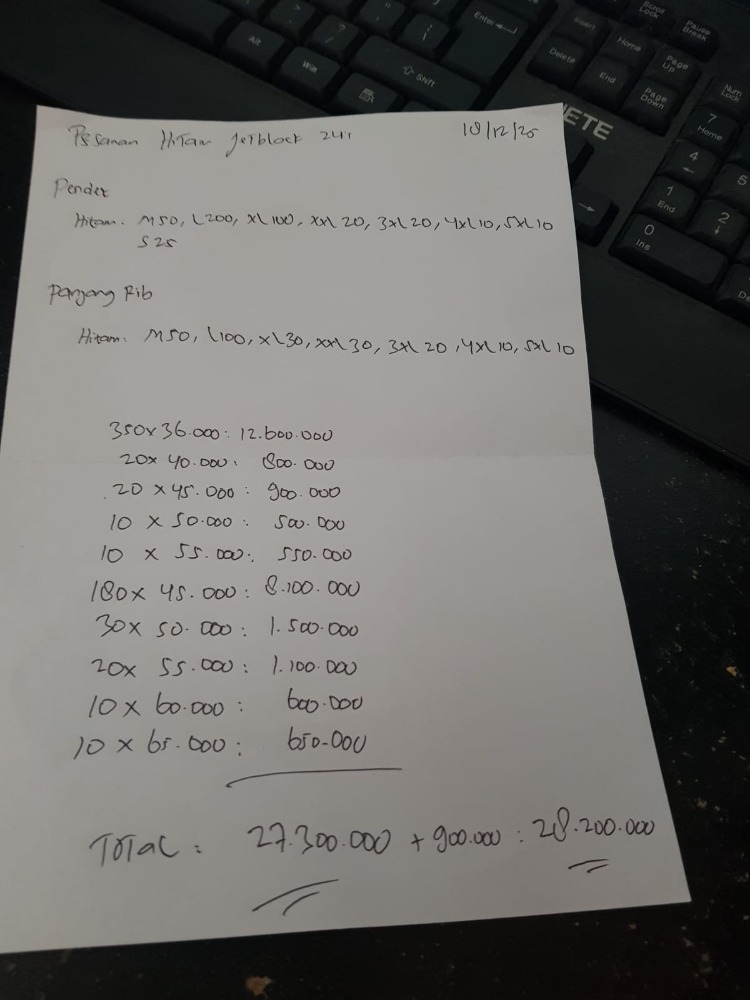 Enter
Alt
Win
Shift
Insert
Delete
Home
End
Page Up
Page Down
Scroll Lock
Pause Break
Num Lock
7 Home
4
1 End
2
5
0 Ins
De
ETE
Pesanan Hitam Jetblack 24s 18/12/25
Pendek
Hitam: M50, L200, XL100, XXL 20, 3XL 20, 4XL 10, 5XL 10
S 25
Panjang Rib
Hitam: M50, L100, XL30, XXL 30, 3XL 20, 4XL 10, 5XL 10
350x36.000: 12.600.000
20x 40.000: 800.000
20 x 45.000: 900.000
10 x 50.000: 500.000
10 x 55.000: 550.000
180x 45.000: 8.100.000
30x 50.000: 1.500.000
20x 55.000: 1.100.000
10 x 60.000: 600.000
10 x 65.000: 650.000
TOTAL: 27.300.000 + 900.000: 28.200.000